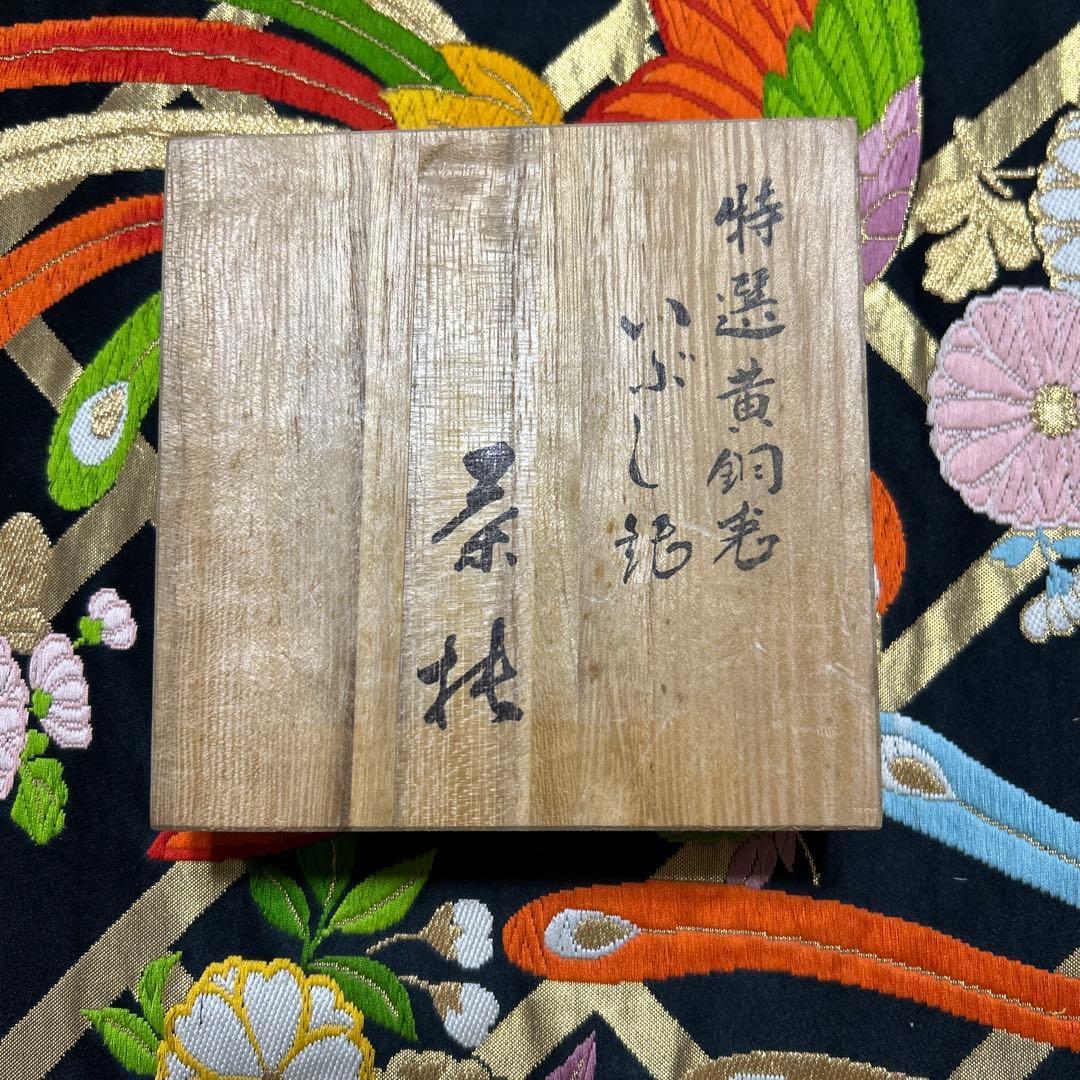 特選黄銅
いぶし銀
茶托